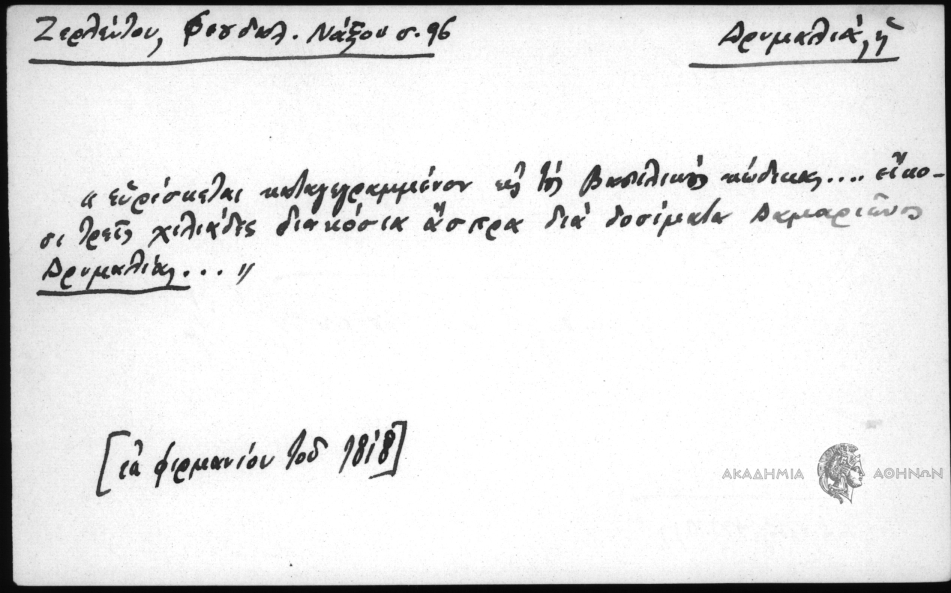 Ζερλέντου, Φεουδαλ. Νάξου σ. 96
Δρυμαλιά, ἡ
« εὑρίσκεται καταγεγραμμένον εἰς τοὺς Βασιλικοὺς κώδικας.... εἴκο-
σι τρεῖς χιλιάδες διακόσια ἄσπρα διὰ δοσίματα Δαμαριῶνος
Δρυμαλίας... »
[ἐκ φιρμανίου τοῦ 1818]
ΑΚΑΔΗΜΙΑ ΑΘΗΝΩΝ